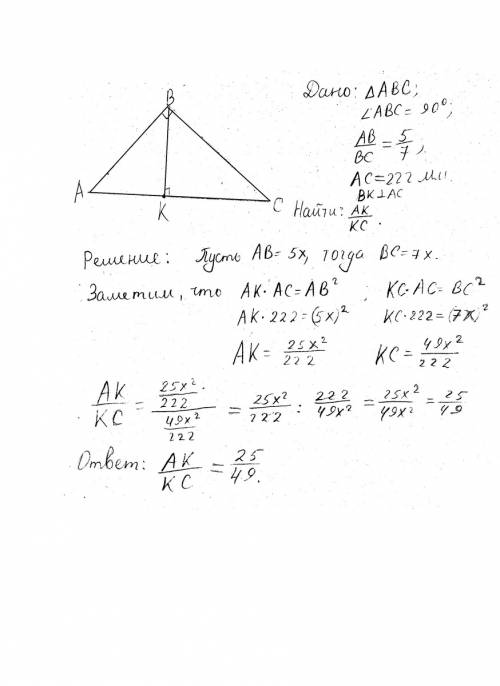 B
A
K
C
Дано: △ABC;
∠ABC = 90°;
AB/BC = 5/7,
AC=222 мм.
BK⊥AC
Найти: AK/KC.
Решение: Пусть AB= 5x, тогда BC= 7x.
Заметим, что AK·AC=AB² ; KC·AC= BC²
AK·222=(5x)² KC·222=(7x)²
AK= 25x²/222 KC= 49x²/222
AK/KC = 25x²/222 / 49x²/222 = 25x²/222 : 222/49x² = 25x²/49x² = 25/49
Ответ: AK/KC = 25/49.